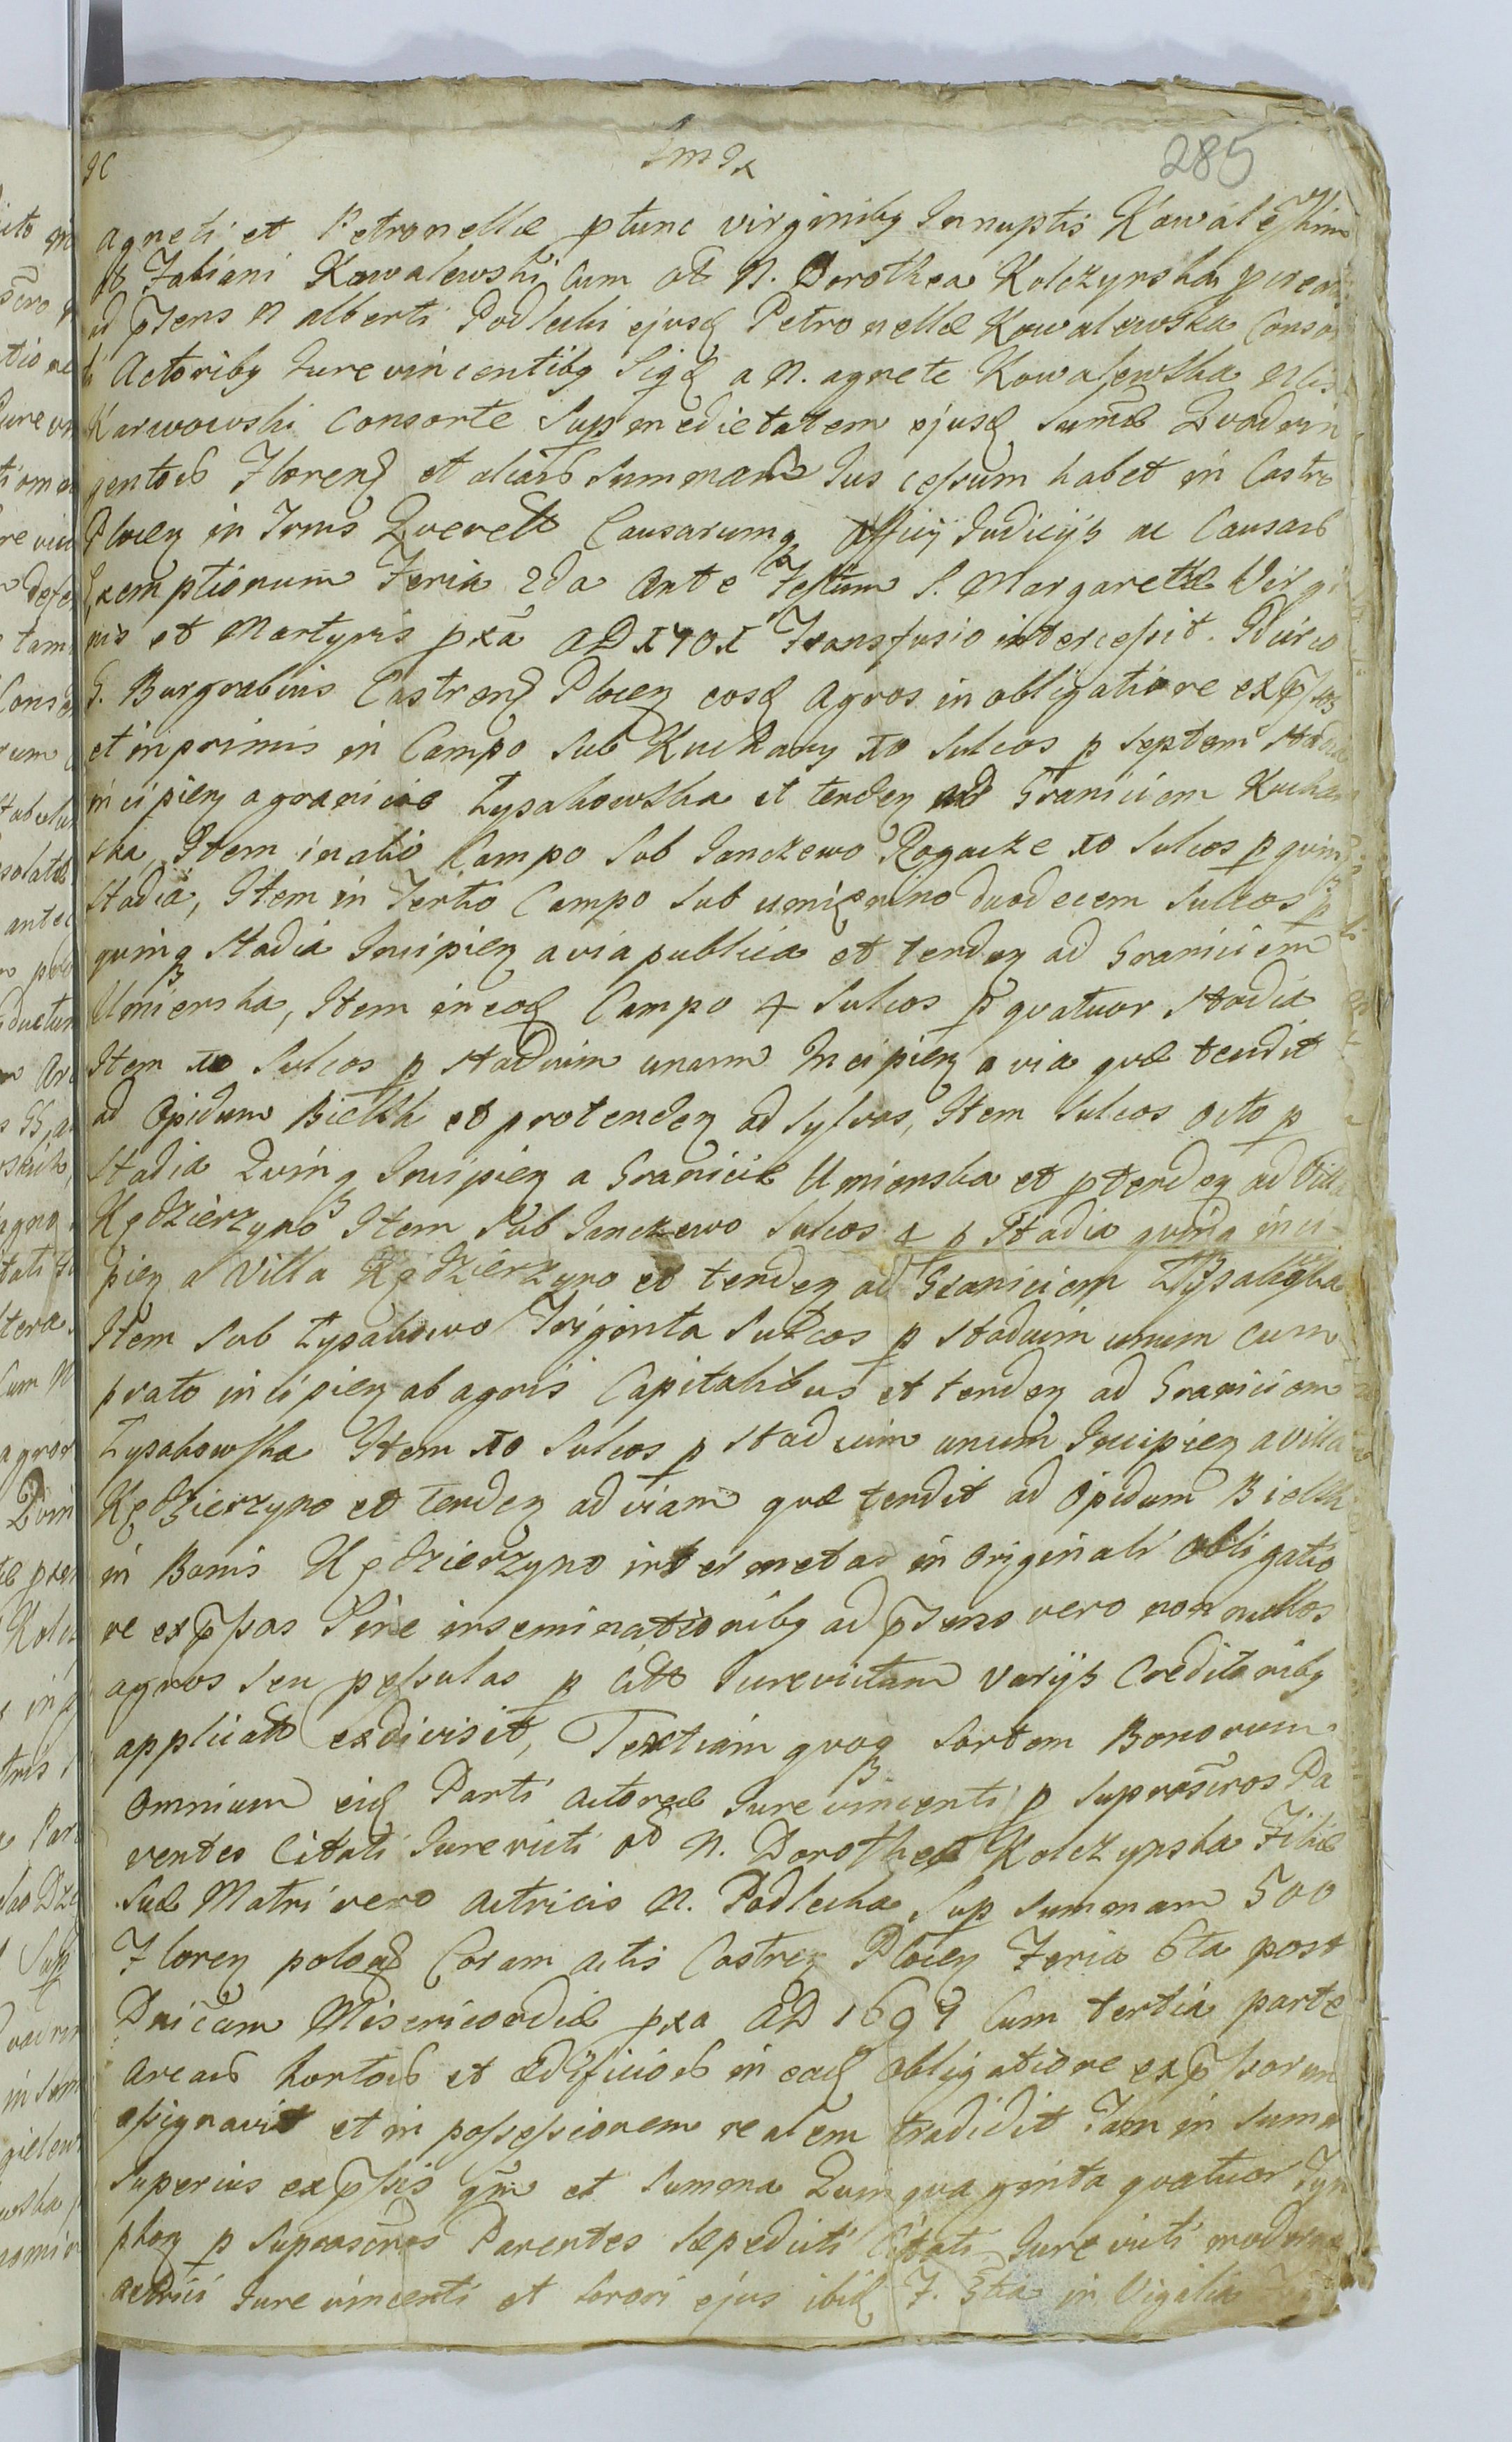 285
agneti et Petronellæ ptunc virginiby Innuptis Kowalewskim
Fabiani Kowalewski cum ol N. Dorothea Kolczynska
ad psens N alberti Podlecki ejusq Petronellæ Kowalewska Conso
Actoriby Jurevincentiby Sigq a N. agnete Kowalewska Nlis
Karwowski Consorte Sup medietatem ejusq Summæ Qvadrin
gentorb Floreng et aliarb Summarb Jus cessum habet in Castro
Plocen in Trnis Qverell Causarumq Officij Judicijs ac Causarb
Exemptionum Feria 2da Ante Festum S. Margarethæ Virgi
nis et Martyris pxa AD 1701 Transfusio intercessit.
G. Burgrabius Castrenq Plocen eosq Agros in obligatione expssos
et inprimis in Campo Sub Kuchary 10 Sulcos p Septem Stadia
incipien a granicie Łysakowska et tenden ad Graniciem Kucha
ska, Item in alio Campo Sub Janczewo Rogacze 10 Sulcos p qvinq
Stadia, Item in Tertio Campo Sub umięnino duodecem Sulcos p
qvinq Stadia Incipien a via publica et tenden ad Graniciem
Umienska, Item in eoq Campo 4 Sulcos p qvatuor Stadia
Item 10 Sulcos p Stadium unum Incipien a via qvæ tendit
ad Opidum Bielsk et protenden ad Sylvas, Item Sulcos octo p
Stadia Qvinq Incipien a Granicie Umienska et ptenden ad Villa
Kędzierzyno Item Sub Janczewo Sulcos 4 p Stadia qvinq inci-
pien a Villa Kędzierzyno et tenden ad Graniciem Łysakowska
Item Sub Łysakowo Triginta Sulcos p Stadium unum cum
prato incipien ab agris Capitalibus et tenden ad Graniciem
Łysakowska Item 10 Sulcos p Stadium unum Incipien a villa
Kędzierzyno et tenden ad viam qvæ tendit ad Opidum Bielsk
in Bonis Kędzierzyno inter metas in Originali Obligatio
ne expssas Sine inseminationiby ad psens vero nonnullos
agros Seu pessulas p Citt Jurevictam Varijs Creditoriby
applicatt exdivisit, Tertiam qvoq Sortem Bonorum
Omnium eiq Parti Actoreæ Jurevincenti p Suprascros Pa
rentes Citati Jurevicti ol N. Dorothea Kolczynska Filiæ
Suæ Matri vero Actricis N. Podlecka Sup Summam 500
Floren polonq Coram actis Castren Plocen Feria 6ta post
Dnicam Misericordiæ pxa AD 1699 Cum tertia parte
Arearb hortorb et ædificiorb in eaq Obligatione expssorum
assignavit et in possessionem realem tradidit Tam in Suma
Superius expssis qm et Summa Qvinqvaginta qvatuor Tyn
phon p Suprascros Parentes Sæpedicti Citati Jure victi moderna
Actrici Jurevincenti et Sorori ejus ibiq F. 5ta in Vigilia